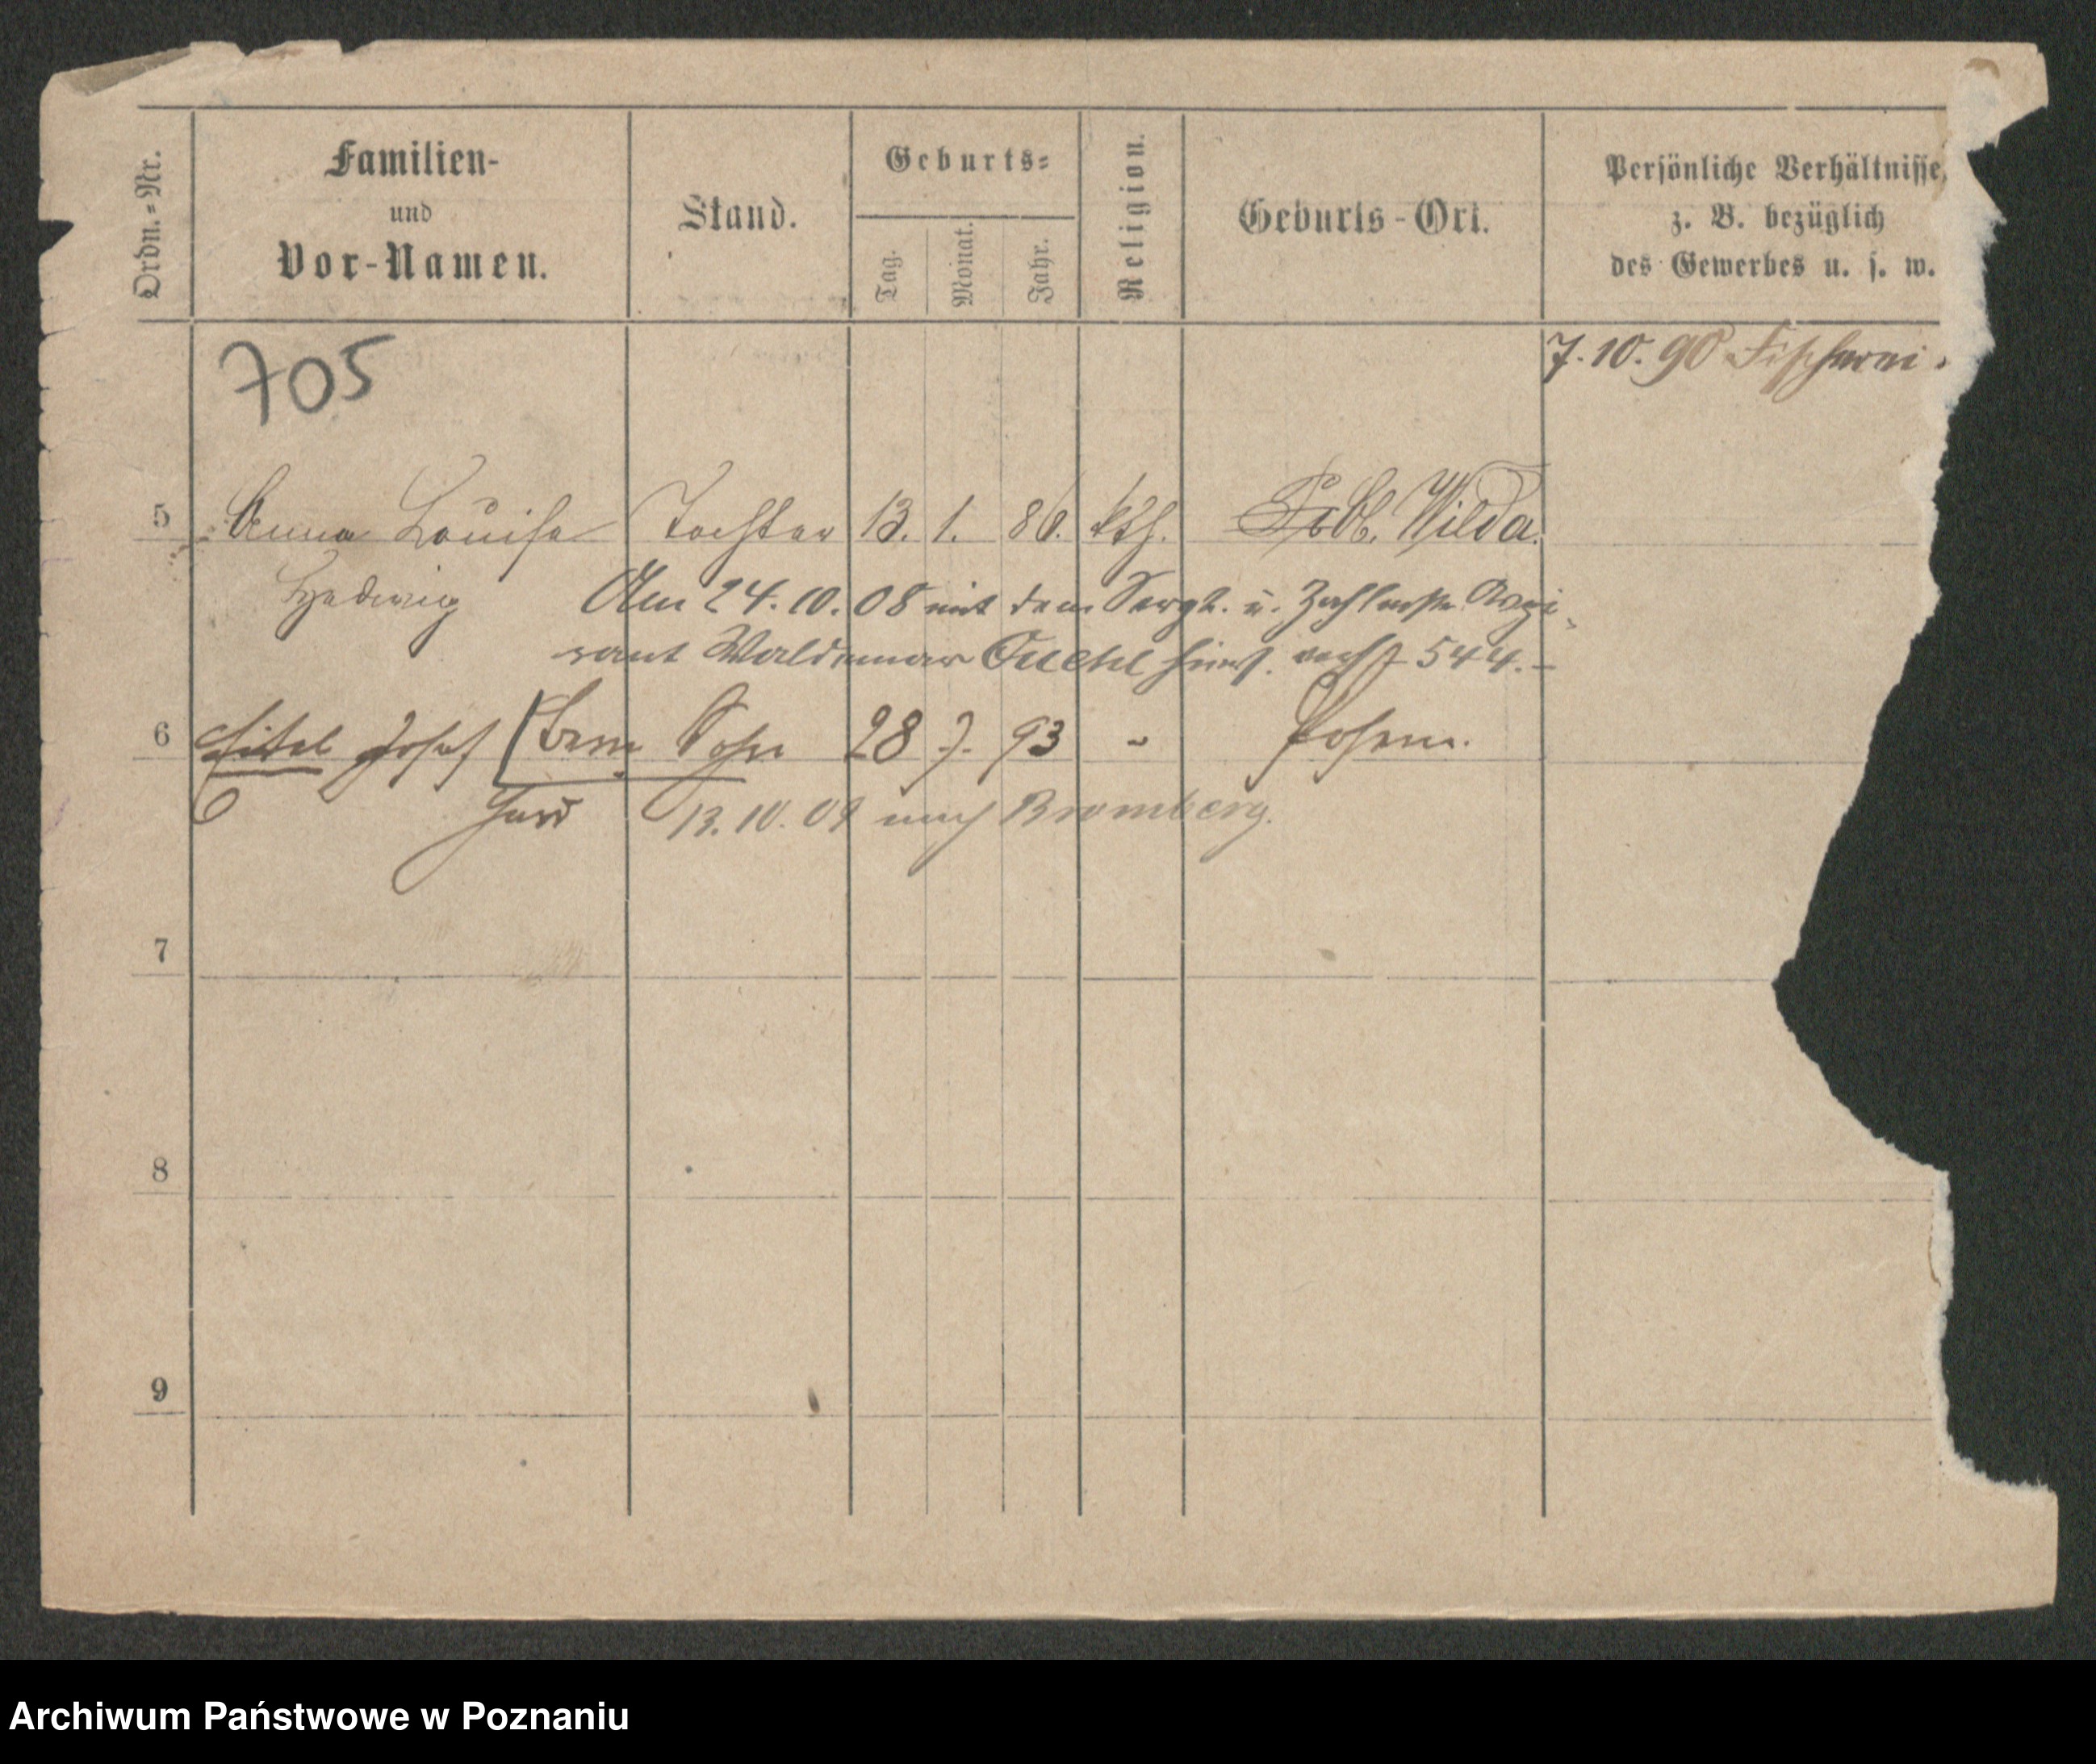 Ordn.=Nr.
Familien-
und
Vor-Namen.
Stand.
Geburts=
Tag.
Monat.
Jahr.
Religion.
Geburts-Ort.
Persönliche Verhältnisse,
z. B. bezüglich
des Gewerbes u. s. w.
705
7. 10. 90 Fischerei
5 Anna Louise Tochter 13. 1. 86. kth. Wilda.
Hedwig Am 24. 10. 08 mit dem Sergt. u. Zahlmstr. Aspi-
rant Waldemar 544.
6 Eitel Josef Sohn 28 7. 93 " Posen.
13. 10. 09 nach Bromberg.
7
8
9
Archiwum Państwowe w Poznaniu